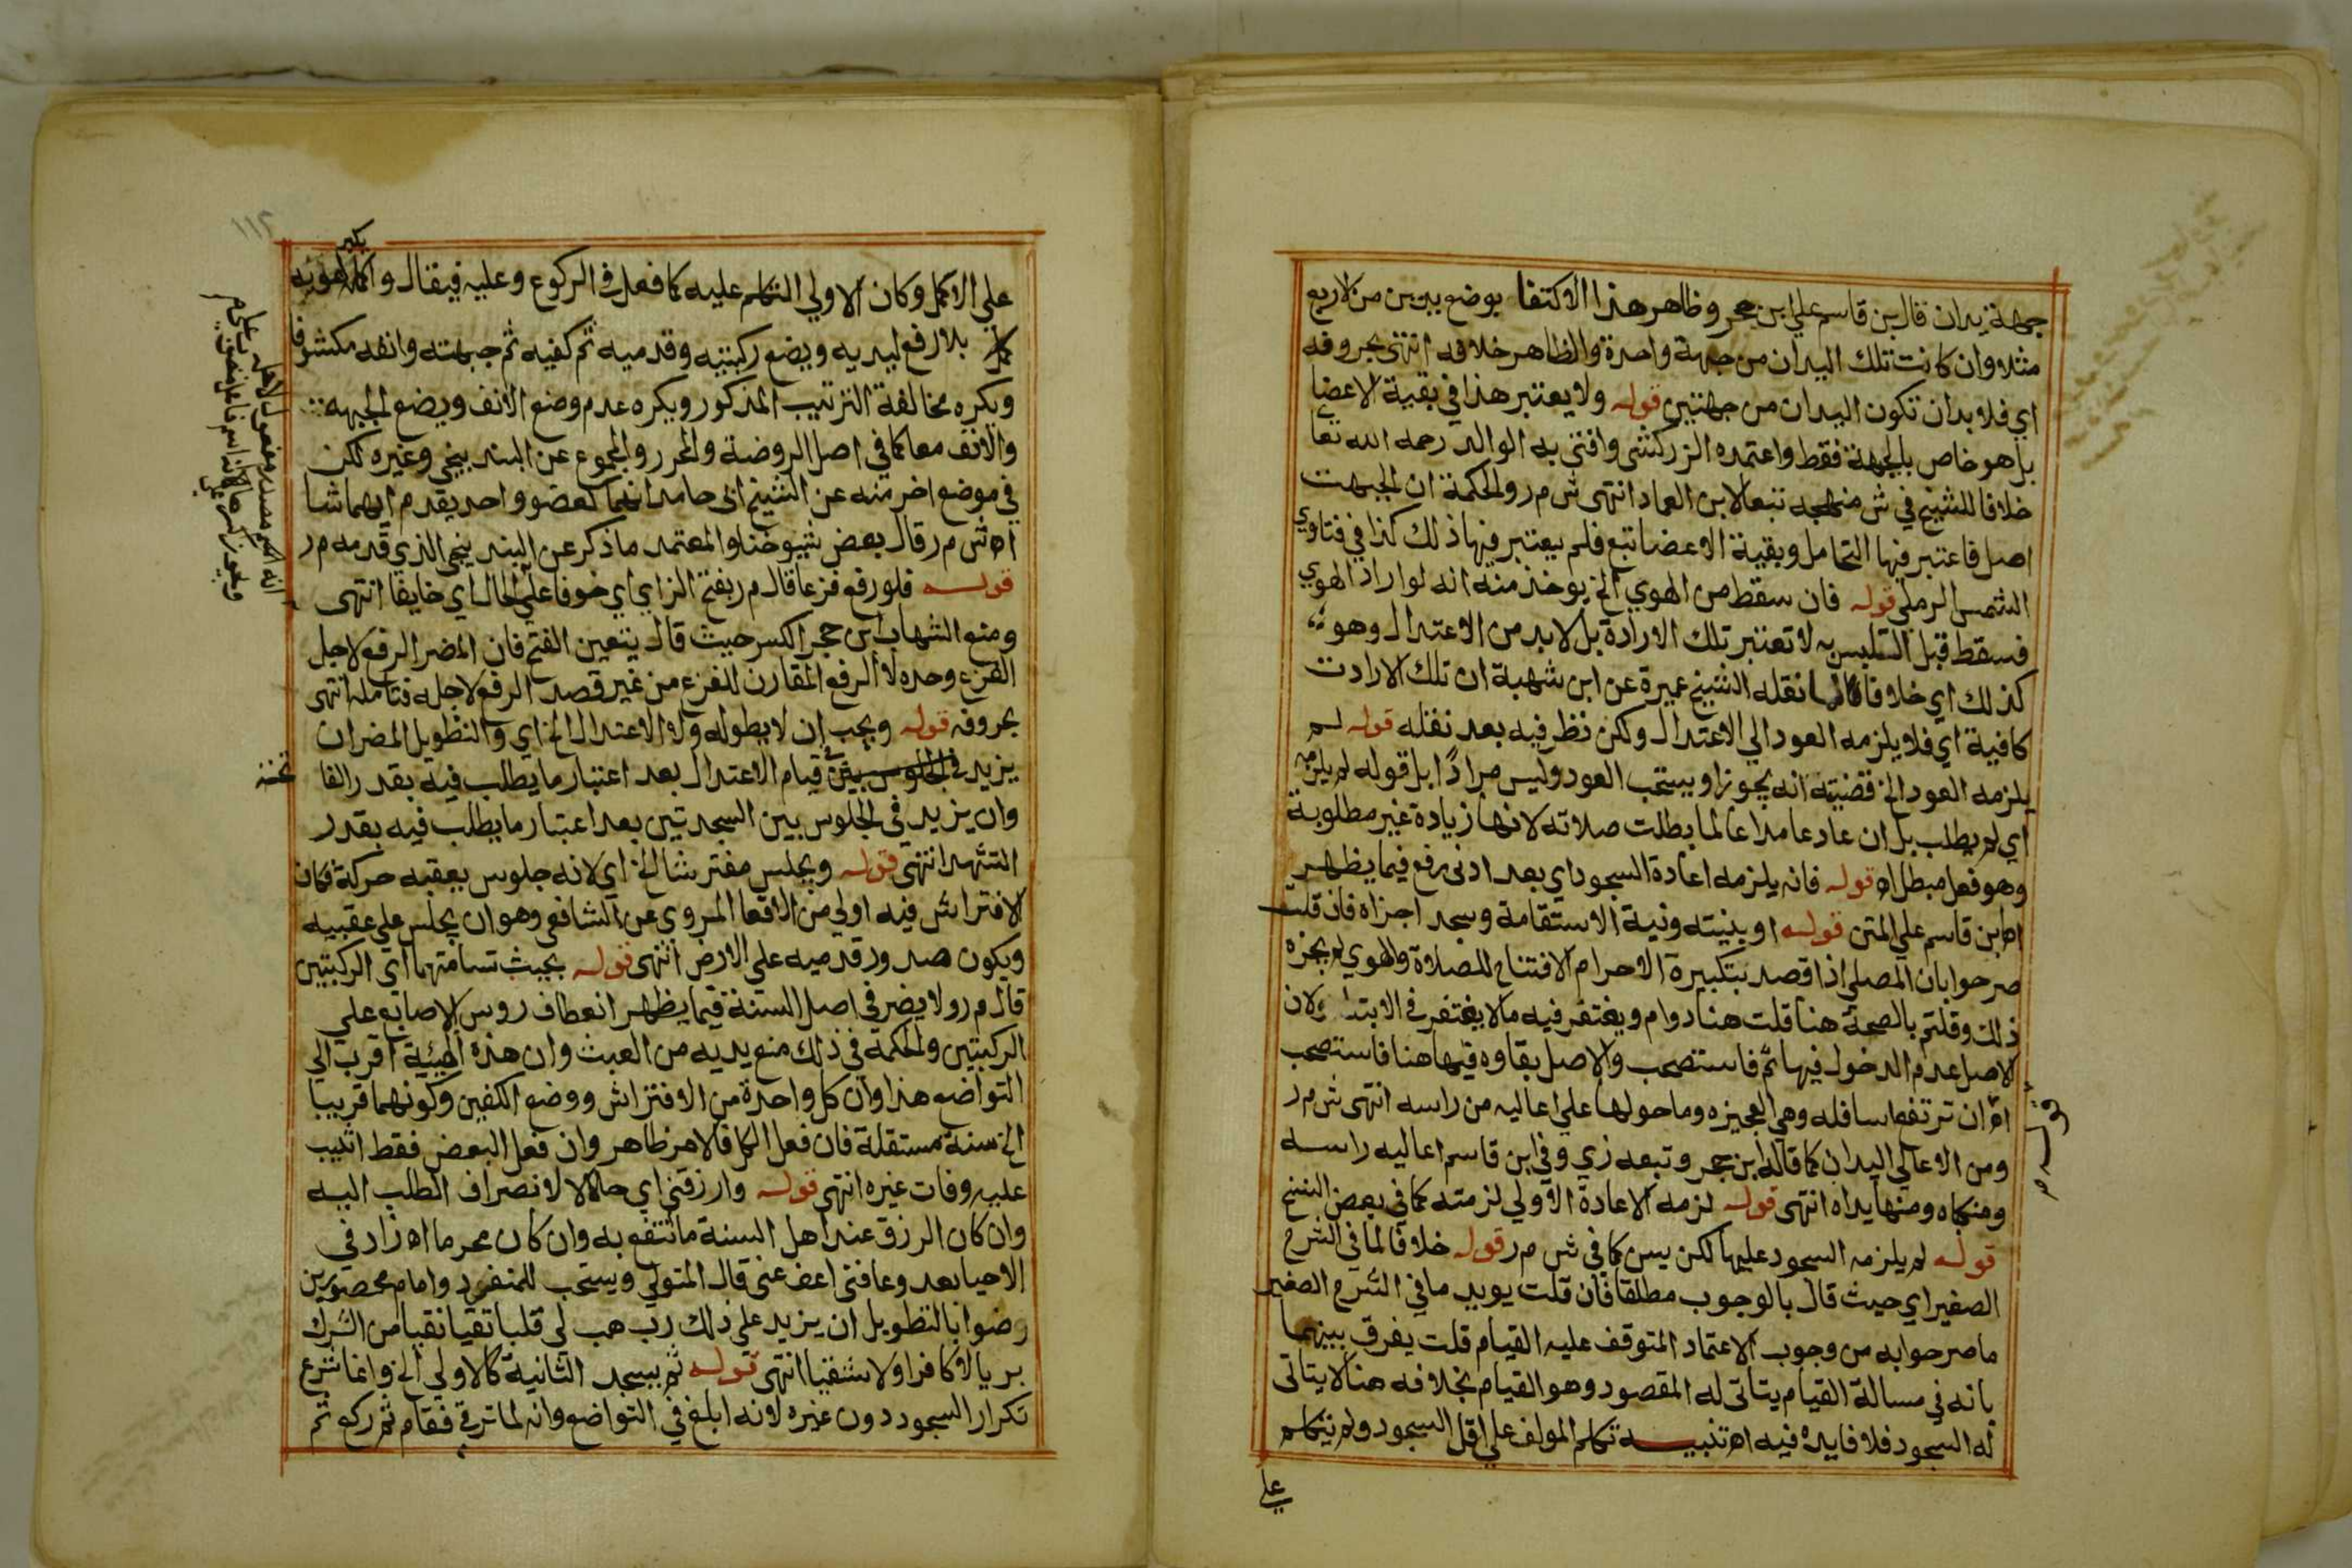 جبهة يدان قال بن قاسم علي ابن حجر وظاهر هذا الاكتفا بوضع يدين من الاربع
مثلا وان كانت تلك اليدان من جهة واحدة والظاهر خلافه انتهى بحروفه
اي فلا بد ان تكون اليدان من جهتين قوله ولا يعتبر هذا في بقية الاعضا
بل هو خاص بالجبهة فقط واعتمده الزركشي وافتى به الوالد رحمه الله تعا
خلافا للشيخ في ش منهجه تبعا لابن العماد انتهى ش م ر والحكمة ان الجبهت
اصل فاعتبر فيها التحامل وبقية الاعضا تبع فلم يعتبر فيها ذلك كذا في فتاوي
الشمس الرملي قوله فان سقط من الهوي الخ يوخذ منه انه لو اراد الهوي
فسقط قبل التلبس به لا تعتبر تلك الارادة بل لا بد من الاعتدال وهو
كذلك اي خلافا لما نقله الشيخ عميرة عن ابن شهبة ان تلك الارادت
كافية اي فلا يلزمه العود الي الاعتدال ولكن نظر فيه بعد نقله قوله لم
يلزمه العود الخ قضيته انه يجوز او يستحب العود وليس مرادًا بل قوله لم يلزمه
اي لم يطلب بل ان عاد عامدا عالما بطلت صلاته لانها زيادة غير مطلوبة
وهو فعل مبطل اه قوله فانه يلزمه اعادة السجود اي بعد ادنى رفع فيما يظهر
اه ابن قاسم علي المتن قوله او بنيته ونية الاستقامة وسجد اجزاه فان قلت
صرحوا بان المصلي اذا قصد بتكبيرة الاحرام الافتتاح للصلاة والهوي لم يجزه
ذلك وقلتم بالصحة هنا قلت هنا دوام ويغتفر فيه ما لا يغتفر في الابتدا ولان
الاصل عدم الدخول فيها ثم فاستصحب والاصل بقاوه فيها هنا فاستصحب
اه ان ترتفع اسافله وهي العجيزه وما حولها علي اعاليه من راسه انتهى ش م ر
ومن الاعالي اليدان كما قاله ابن حجر وتبعه زي وفي ابن قاسم اعاليه راسه
ومنكباه ومنها يداه انتهى قوله لزمه الاعادة الاولي لزمته كما في بعض النسخ
قوله لم يلزمه السجود عليها لكن يسن كما في ش م ر قوله خلافا لما في الشرح
الصغير اي حيث قال بالوجوب مطلقا فان قلت يويد ما في الشرح الصغير
ما صرحوا به من وجوب الاعتماد المتوقف عليه القيام قلت يفرق بينهما
بانه في مسالة القيام يتاتى له المقصود وهو القيام بخلافه هنا لا يتاتى
له السجود فلا فايدة فيه اه تنبيه تكلم المولف علي اقل السجود ولم يتكلم
علي
علي الاكمل وكان الاولي التكلم عليه كما فعل في الركوع وعليه فيقال واكمله يكبر لهويه
بلا رفع ليديه ويضع ركبتيه وقدميه ثم كفيه ثم جبهته وانفه مكشوفا
ويكره مخالفة الترتيب المذكور ويكره عدم وضع الانف ويضع الجبهه
والانف معا كما في اصل الروضة والمحرر والمجموع عن البندنيجي وغيره لكن
في موضع اخر منه عن الشيخ ابي حامد انهما كعضو واحد يقدم ايهما شا
اه ش م ر قال بعض شيوخنا والمعتمد ما ذكر عن البندنيجي الذي قدمه م ر
قوله فلو رفع فزعا قال م ر بفتح الزاي اي خوفا علي الحال اي خايفا انتهى
ومنع الشهاب ابن حجر الكسر حيث قال يتعين الفتح فان المضر الرفع لاجل
الفزع وحده لا الرفع المقارن للفزع من غير قصد الرفع لاجله فتامله انتهى
بحروفه قوله ويجب ان لا يطوله ولا الاعتدال الخ اي والتطويل المضر ان
يزيد في قيام الاعتدال بعد اعتبار ما يطلب فيه بقدر الفا تحته
وان يزيد في الجلوس بين السجدتين بعد اعتبار ما يطلب فيه بقدر
التشهد انتهى قوله ويجلس مفترشا الخ اي لانه جلوس يعقبه حركة فكان
الافتراش فيه اولي من الاقعا المروي عن الشافعي وهو ان يجلس علي عقبيه
ويكون صدور قدميه علي الارض انتهى قوله بحيث تسامتهما اي الركبتين
قال م ر ولا يضر في اصل السنة فيما يظهر انعطاف روس الاصابع علي
الركبتين والحكمة في ذلك منع يديه من العبث وان هذه الهيئة اقرب الي
التواضع هذا وان كل واحدة من الافتراش ووضع الكفين وكونهما قريبا
الخ سنة مستقلة فان فعل الكل فالامر ظاهر وان فعل البعض فقط اثيب
عليه وفات غيره انتهى قوله وارزقني اي حلالا لانصراف الطلب اليه
وان كان الرزق عند اهل السنة ما انتفع به وان كان محرما اه زاد في
الاحيا بعد وعافني اعف عني قال المتولي ويستحب للمنفرد وامام محصورين
رضوا بالتطويل ان يزيد علي ذلك رب هب لي قلبا تقيا نقيا من الشرك
بريا لا كافرا ولا شقيا انتهى قوله ثم يسجد الثانية كالاولي الخ وانما شرع
تكرار السجود دون غيره لانه ابلغ في التواضع وانه لما ترقى فقام ثم ركع ثم